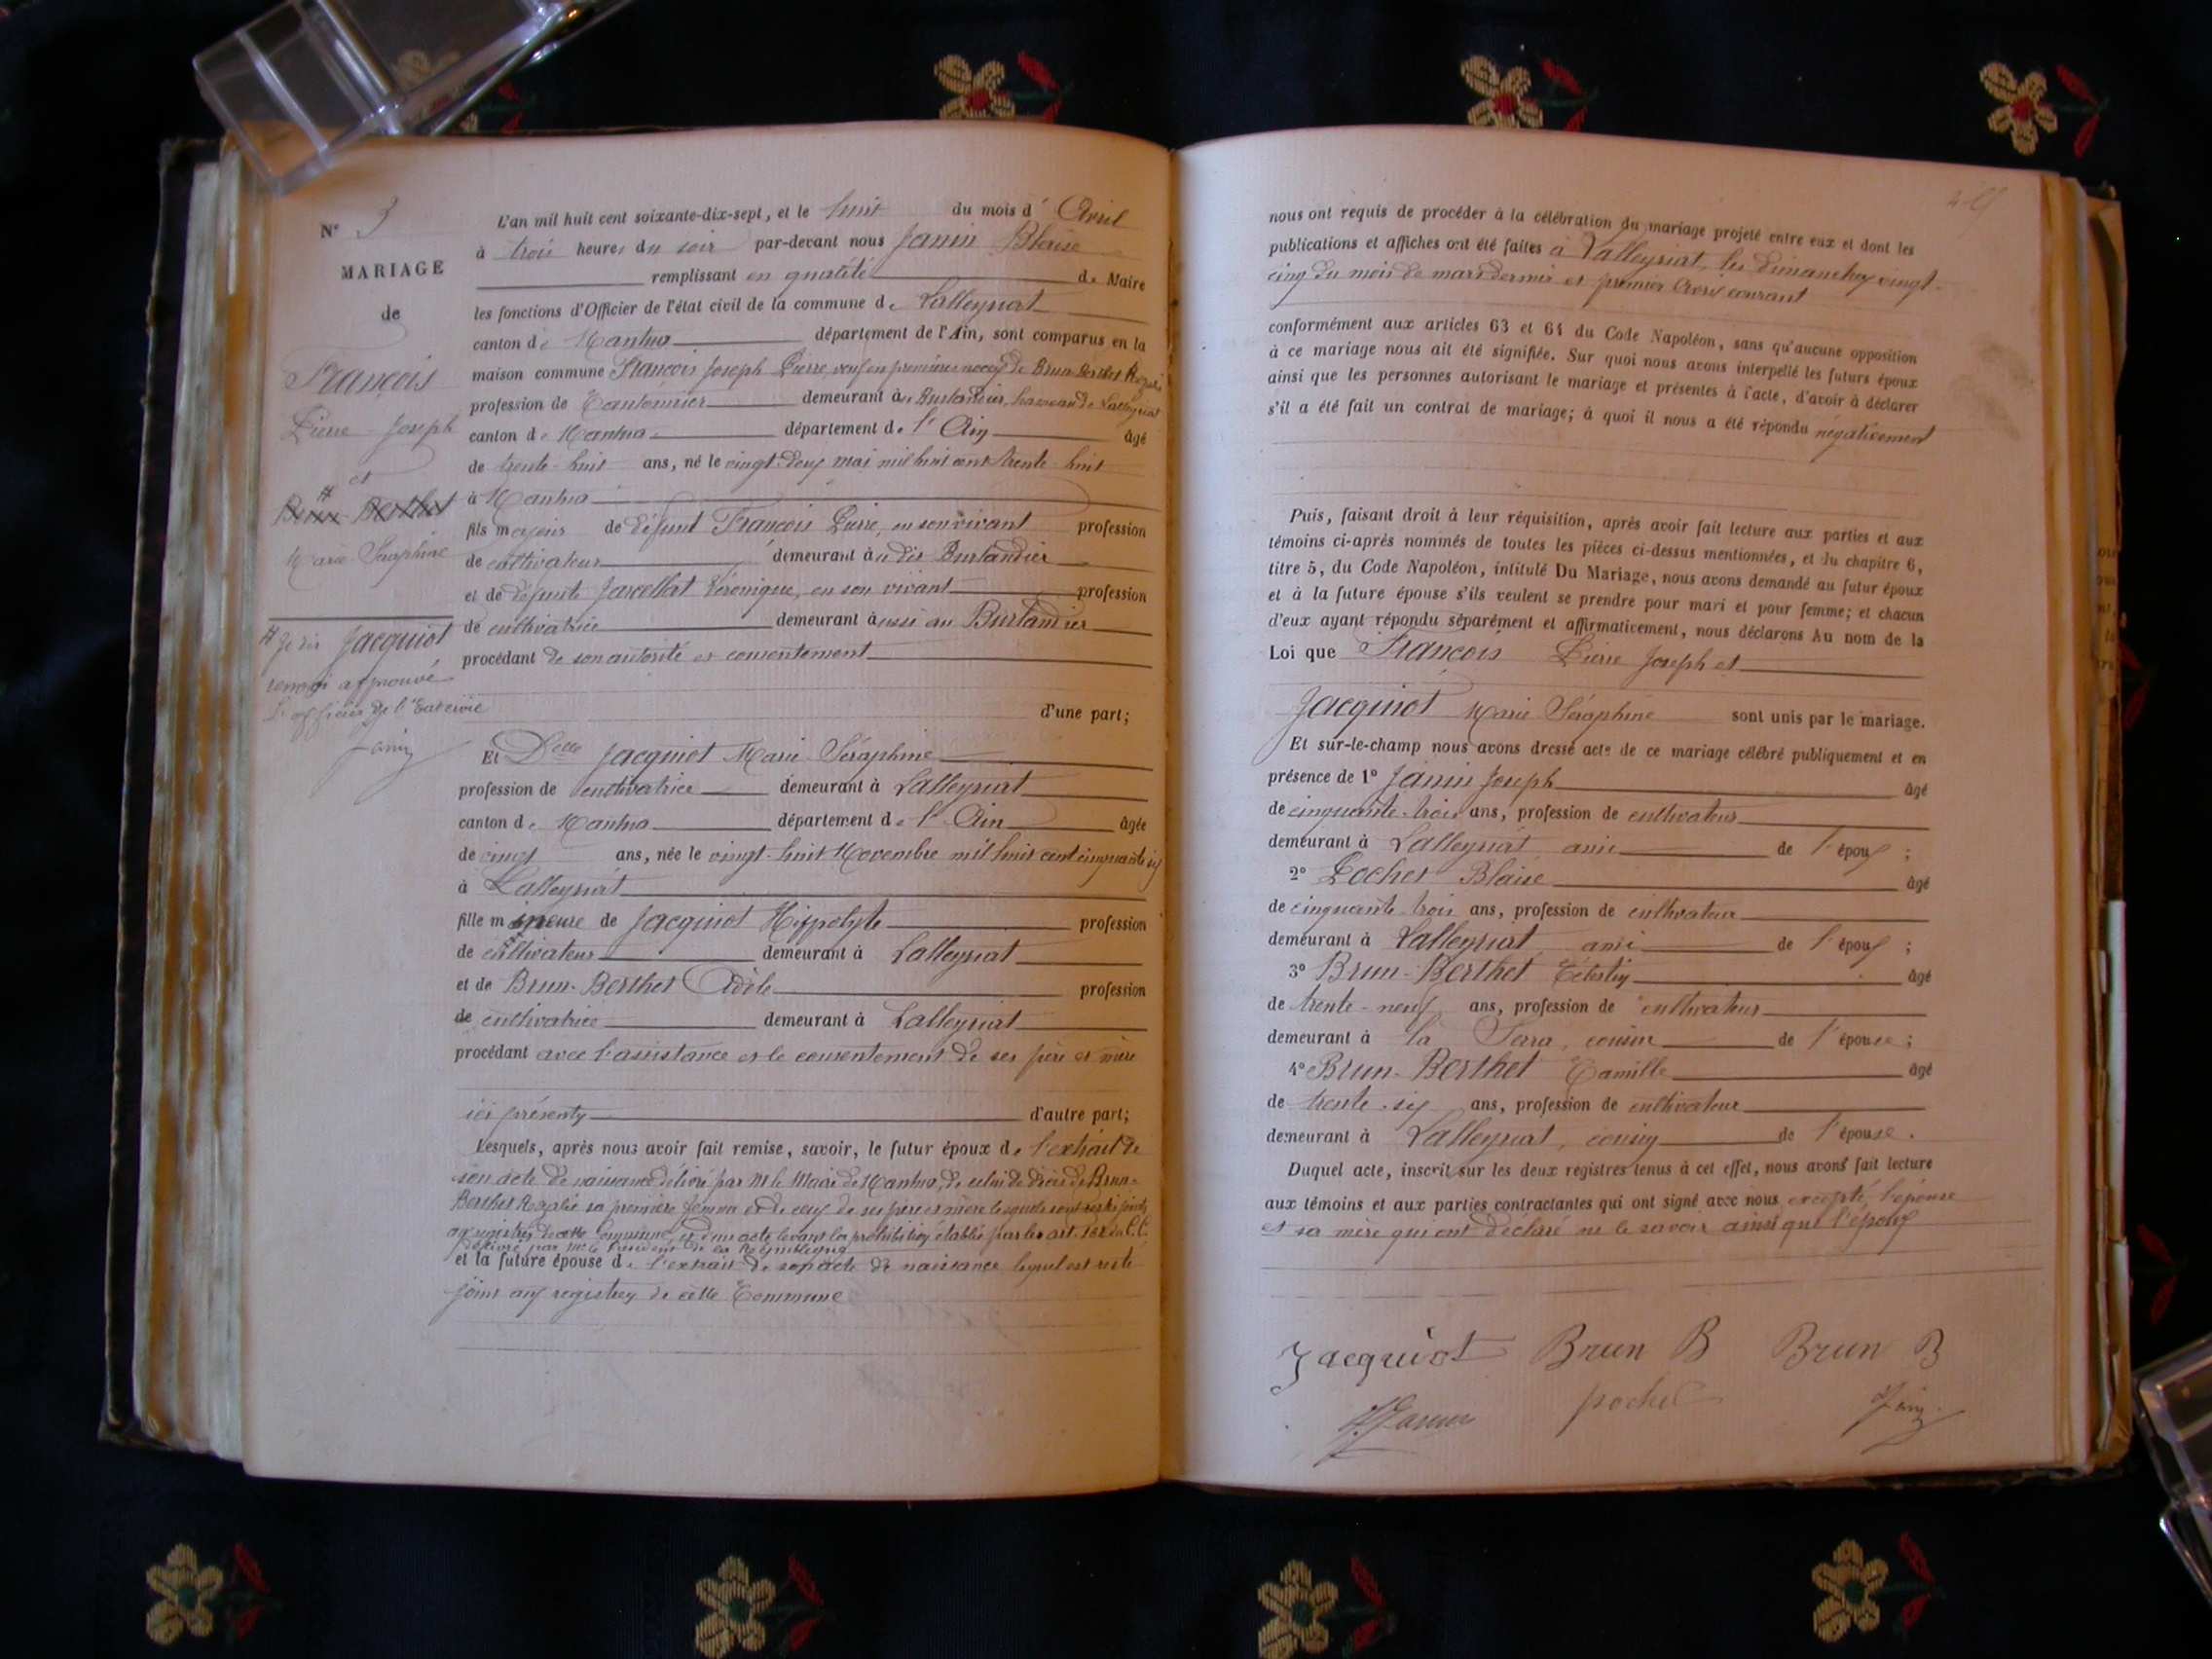 N° 3
MARIAGE
de
François
Pierre - Joseph
et
# Brun Berthet
Marie Séraphine
# Je dis Jacquiot
renvoi approuvé
L'officier de l'Etat civil
Janin
L'an mil huit cent soixante-dix-sept, et le huit du mois d' Avril
à trois heures du soir par-devant nous Janin Blaise
remplissant en qualité de Maire
les fonctions d'Officier de l'état civil de la commune de Lalleyriat
canton de Nantua département de l'Ain, sont comparus en la
maison commune François Joseph Pierre, veuf en premières noces de Brun Berthet Rosalie
profession de Cantonnier demeurant au Burlandier, hameau de Lalleyriat
canton de Nantua département de l'Ain âgé
de trente-huit ans, né le vingt-deux mai mil huit cent trente-huit
à Nantua
fils majeur de défunt François Pierre, en son vivant profession
de cultivateur demeurant au dit Burlandier
et de défunte Jarcellat Véronique, en son vivant profession
de cultivatrice demeurant aussi au Burlandier
procédant de son autorité et consentement
d'une part;
Et Delle Jacquiot Marie Séraphine
profession de cultivatrice demeurant à Lalleyriat
canton de Nantua département de l'Ain âgée
de vingt ans, née le vingt-huit Novembre mil huit cent cinquante six
à Lalleyriat
fille mineure de Jacquiot Hippolyte profession
de cultivateur demeurant à Lalleyriat
et de Brun-Berthet Adèle profession
de cultivatrice demeurant à Lalleyriat
procédant avec l'assistance et le consentement de ses père et mère
ici présents d'autre part;
Lesquels, après nous avoir fait remise, savoir, le futur époux de l'extrait de
son acte de naissance délivré par Mr le Maire de Nantua, de celui de décès de Brun-
Berthet Rosalie sa première femme et de ceux de ses père et mère lesquels sont restés joints
aux registres de cette Commune, et d'un acte levant la prohibition établie par les art. 162 du C.C.
délivré par Mr le Président de la République
et la future épouse de l'extrait de son acte de naissance lequel est resté
joint aux registres de cette Commune
nous ont requis de procéder à la célébration du mariage projeté entre eux et dont les
publications et affiches ont été faites à Lalleyriat, les Dimanches vingt-
cinq du mois de mars dernier et premier Avril courant
conformément aux articles 63 et 64 du Code Napoléon, sans qu'aucune opposition
à ce mariage nous ait été signifiée. Sur quoi nous avons interpellé les futurs époux
ainsi que les personnes autorisant le mariage et présentes à l'acte, d'avoir à déclarer
s'il a été fait un contrat de mariage; à quoi il nous a été répondu négativement
Puis, faisant droit à leur réquisition, après avoir fait lecture aux parties et aux
témoins ci-après nommés de toutes les pièces ci-dessus mentionnées, et du chapitre 6,
titre 5, du Code Napoléon, intitulé Du Mariage, nous avons demandé au futur époux
et à la future épouse s'ils veulent se prendre pour mari et pour femme; et chacun
d'eux ayant répondu séparément et affirmativement, nous déclarons Au nom de la
Loi que François Pierre Joseph et
Jacquiot Marie Séraphine sont unis par le mariage.
Et sur-le-champ nous avons dressé acte de ce mariage célébré publiquement et en
présence de 1° Janin Joseph âgé
de cinquante-trois ans, profession de cultivateur
demeurant à Lalleyriat ami de l'époux ;
2° Pochet Blaise âgé
de cinquante-trois ans, profession de cultivateur
demeurant à Lalleyriat ami de l'époux ;
3° Brun-Berthet Célestin âgé
de trente-neuf ans, profession de cultivateur
demeurant à la Serra, cousin de l'épouse ;
4° Brun-Berthet Camille âgé
de trente-six ans, profession de cultivateur
demeurant à Lalleyriat, cousin de l'épouse.
Duquel acte, inscrit sur les deux registres tenus à cet effet, nous avons fait lecture
aux témoins et aux parties contractantes qui ont signé avec nous excepté l'épouse
et sa mère qui ont déclaré ne le savoir ainsi que l'époux
Jacquiot Brun B Brun B
Janin pochet Janin